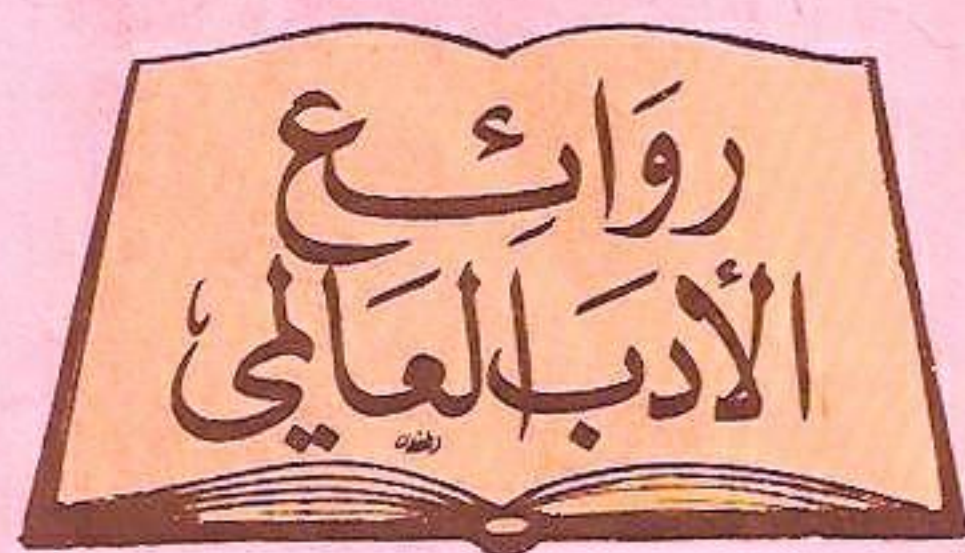 رَوَائِع
الأدَبَ العَالمي